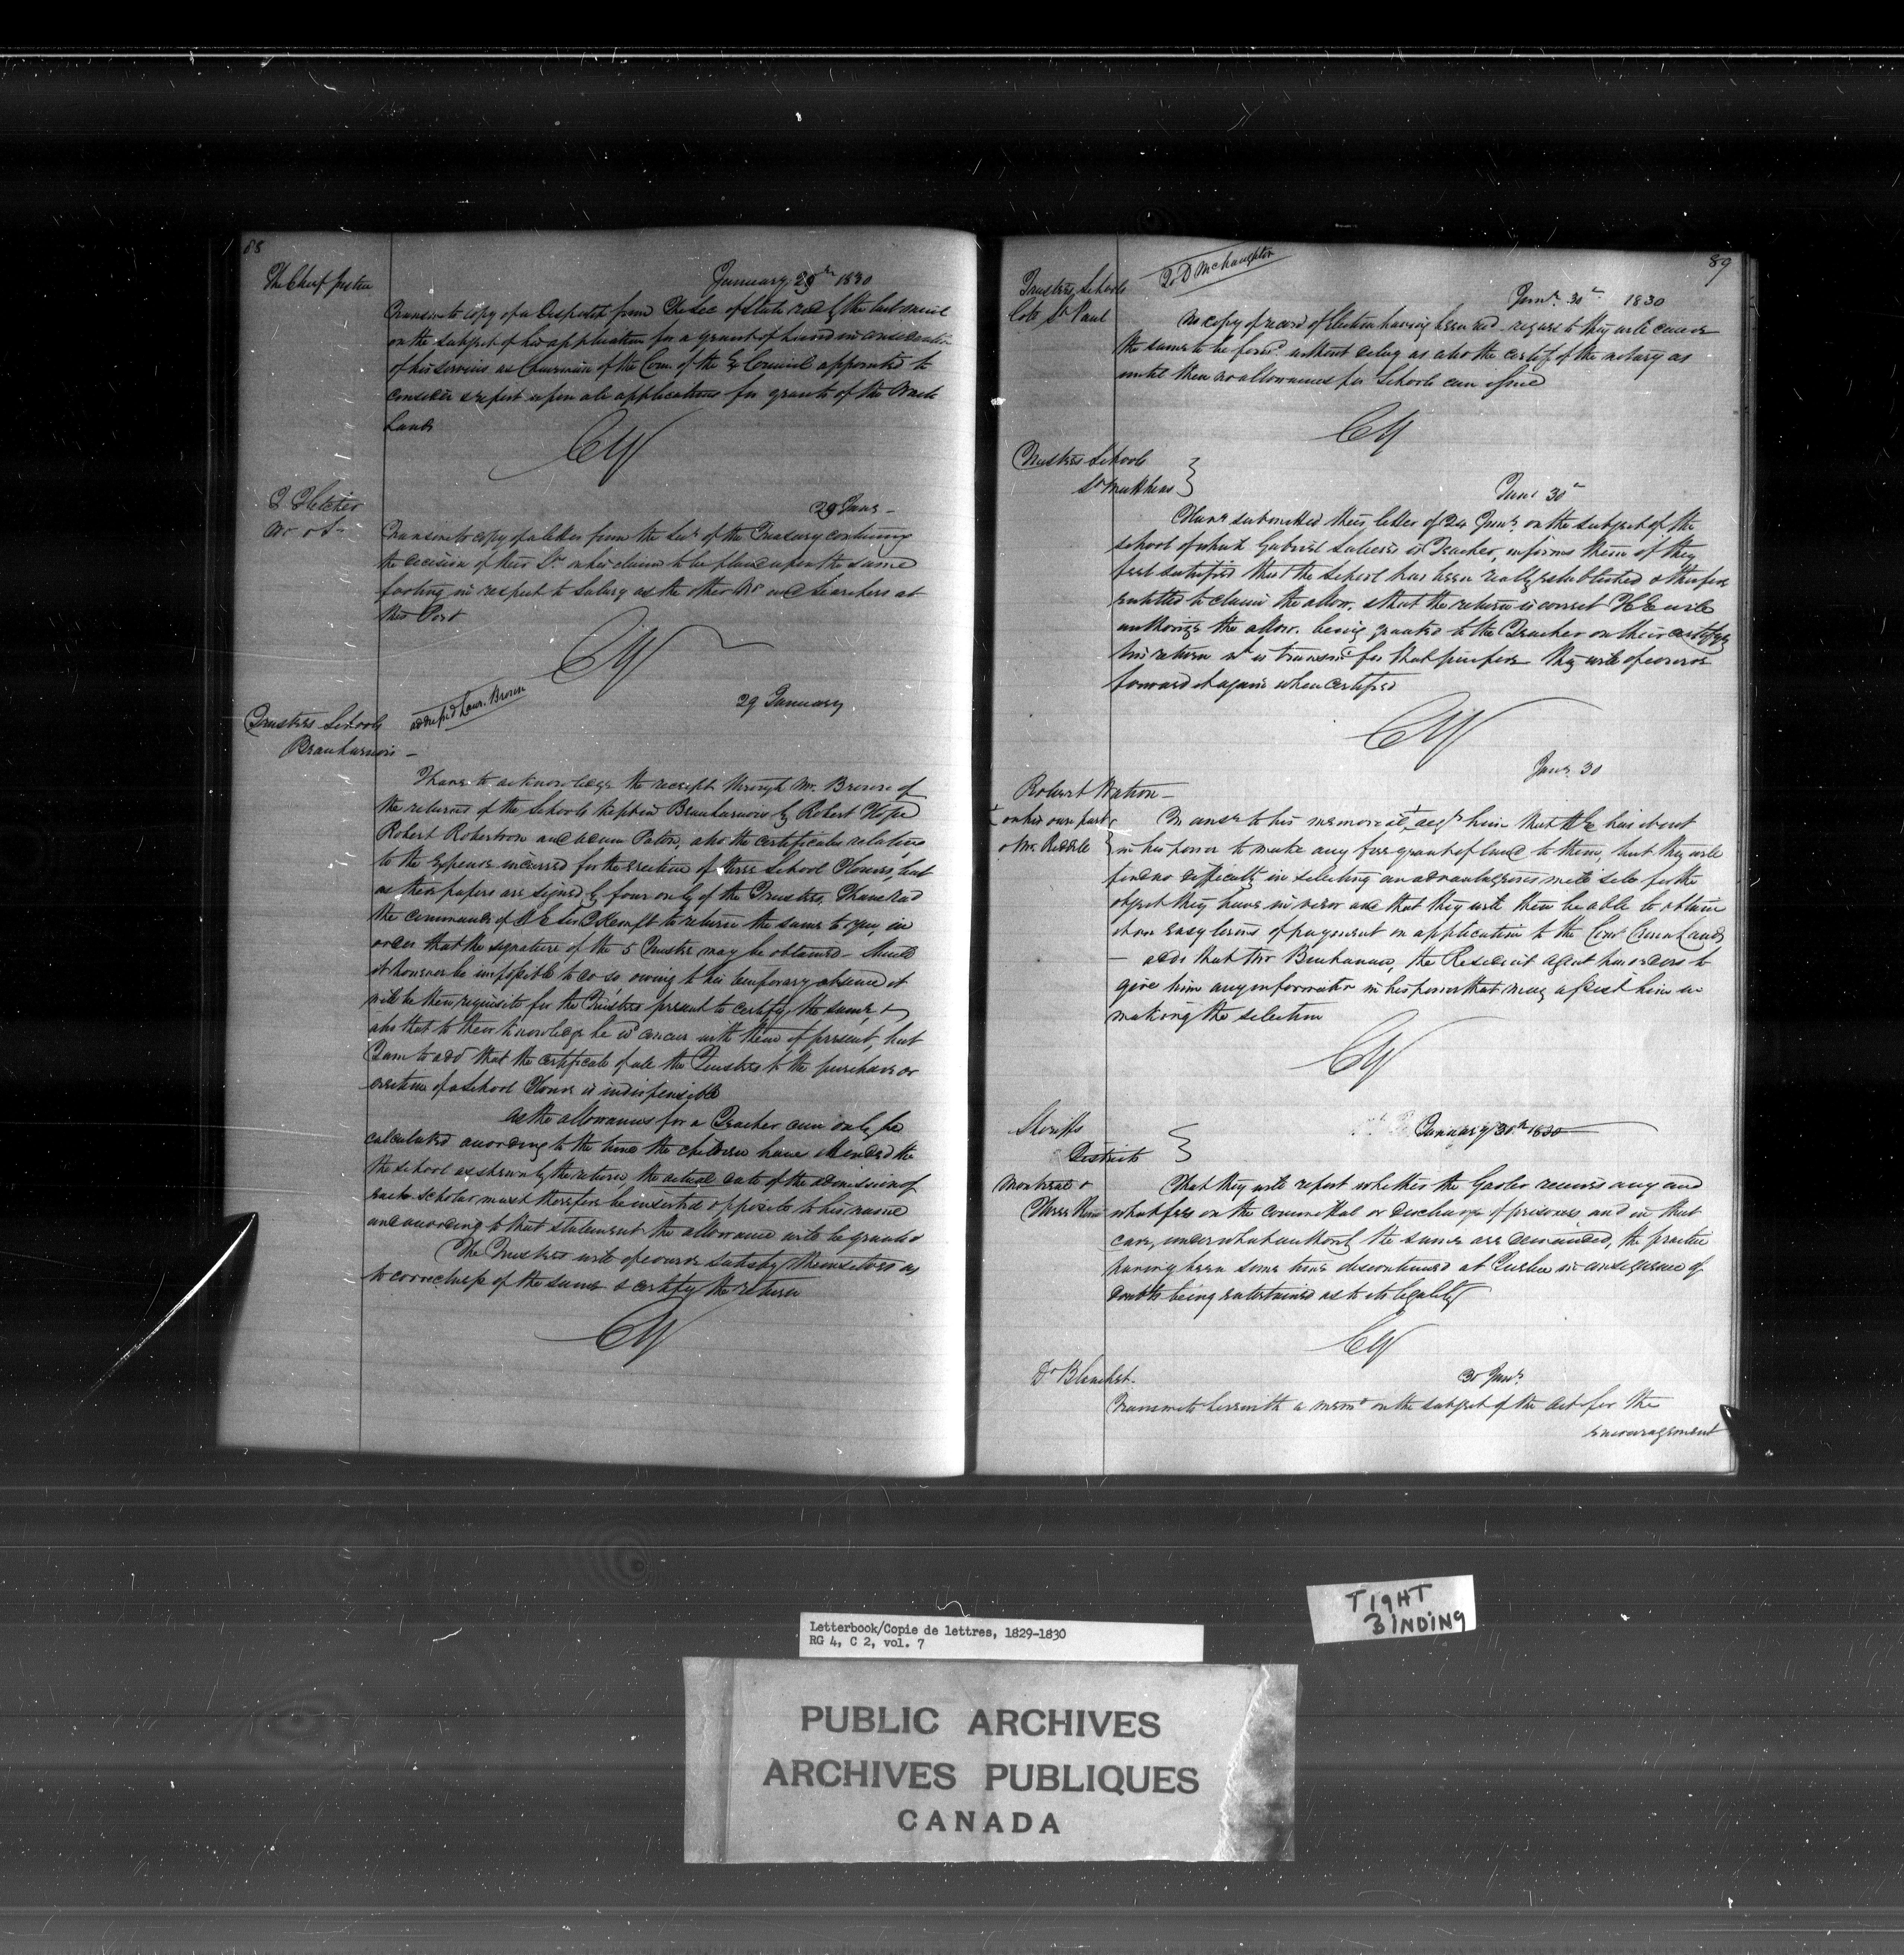 88
The Chief Justice
January 29th 1830
Transmits copy of a Dispatch from the Sec of State recd by the last mail
on the subject of his application for a grant of Land in consideration
of his services as Chairman of the Com. of the Ex Council appointed to
consider & report upon all applications for grants of the Waste
Lands
CY
Fletcher
W & S
29 Jany
Transmits copy of a letter from the Secy of the Treasury containing
the decision of their Lps on his claim to be placed upon the same
footing in respect to Salary as the other Wrs and Searchers at
this Port
CY
Trustees Schools
Beauharnois
addressed Laur. Brown
29 January
I have to acknowledge the receipt through Mr. Brown of
the returns of the Schools kept in Beauharnois by Robert Hope
Robert Robertson and Adam Paton, also the certificates relative
to the Expense incurred for the erection of three School Houses, but
as these papers are signed by four only of the Trustees, I have recd
the commands of H E Sir J Kempt to return the same to you, in
order that the signature of the 5 Trustee may be obtained - Should
it however be impossible to do so owing to his temporary absence it
will be then requisite for the Trustees present to certify the same &
also that to their knowledge he wd concur with them if present, but
I am to add that the certificate of all the Trustees to the purchase or
erection of a School House is indispensible
As the allowances for a Teacher can only be
calculated according to the time the children have attended the
the School as shewn by the return, the actual date of the admission of
each scholar must therefore be inserted opposite to his name
and according to that statement the allowance will be granted
The Trustees will of course satisfy themselves as
to correctness of the same & certify the return
CY
89
Trustees Schools
Cote St Paul
To D McNaughton
Jany 30th 1830
No copy of record of Election having been recd - regards to they will cause
the same to be forwd without delay as also the certif of the notary as
until then no allowances for Schools can issue
CY
Trustees Schools
St Matthias
Jany 30th
Have submitted their letter of 24 Jany on the subject of the
school of which Gabriel is Teacher, informs them if they
feel satisfied that the School has been really established & therefore
entitled to claim the allow. & that the return is correct H E will
authorize the allow. being granted to the Teacher on their certifying
his return wh is transmd for that purpose they will of course
forward it again when certified
CY
Robert Watson
+ on his own part
& Mr. Riddle
Jany 30
In answr to his memorial + acqts him that H E has it not
in his power to make any free grant of land to them, but they will
find no difficulty in selecting an advantageous mill site for the
object they have in view and that they will then be able to obtain
it on easy terms of payment on application to the Comr Crown Lands
- adds that Mr Buchanan, the Resident Agent has orders to
give him any information in his power that may assist him in
making the selection
CY
Sheriffs
Districts
Montreal &
Three Rivers
January 30th 1830
That they will report whether the Gaoler receives any and
what fees on the committal or discharge of prisoners and in that
case, under what authority the same are demanded, the practice
having been some time discontinued at Quebec in consequence of
doubts being entertained as to its legality
CY
Dr Blanchet
30 Jany
Transmits herewith a memo on the subject of the Act for the
encouragement
TIGHT
BINDING
Letterbook/Copie de lettres, 1829-1830
RG 4, C 2, vol. 7
PUBLIC ARCHIVES
ARCHIVES PUBLIQUES
CANADA